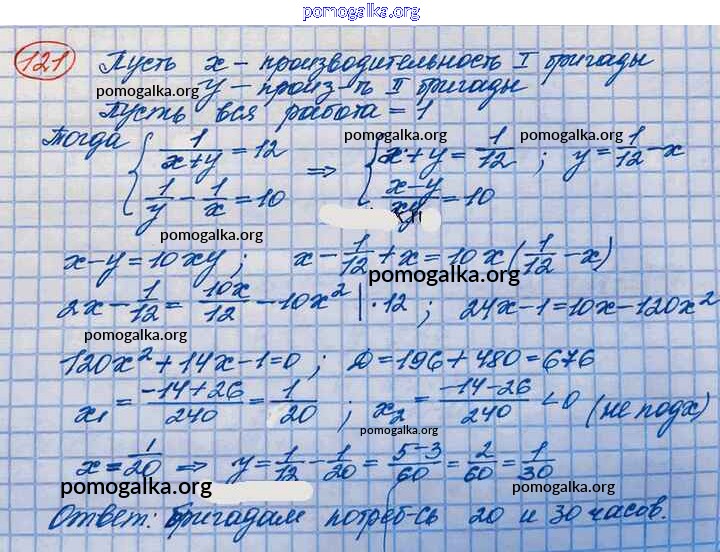 pomogalka.org
121 Пусть x – производительность I бригады
pomogalka.org y – произ-ть II бригады
Пусть вся работа = 1
Тогда { 1/(x+y) = 12 ⇒ { x+y = 1/12 ; y = 1/12 - x
pomogalka.org pomogalka.org
1/y - 1/x = 10 (x-y)/xy = 10
pomogalka.org
x-y = 10xy ; x - 1/12 + x = 10x(1/12 - x)
pomogalka.org
2x - 1/12 = 10x/12 - 10x² |·12 ; 24x-1 = 10x-120x²
pomogalka.org
120x²+14x-1=0 ; D=196+480=676
x₁ = (-14+26)/240 = 1/20 ; x₂ = (-14-26)/240 < 0 (не подх)
pomogalka.org
x = 1/20 ⇒ y = 1/12 - 1/20 = (5-3)/60 = 2/60 = 1/30
pomogalka.org pomogalka.org
Ответ: бригадам потреб-сь 20 и 30 часов.